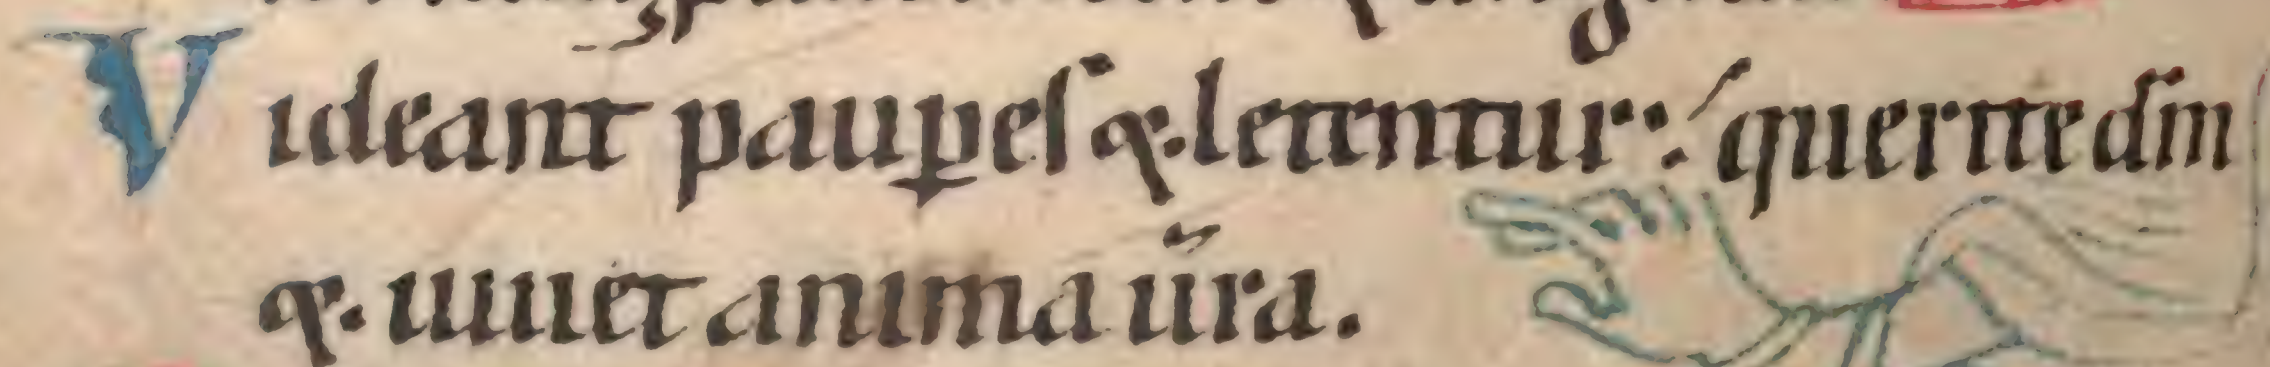 Videant paup̱eſ ⁊ letentur: querite dm̄
⁊ uiuet anima ur̄a.